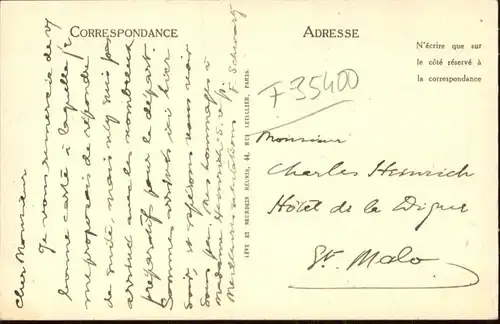 CORRESPONDANCE
Cher Monsieur
Je vous remercie de v/
bonne carte à laquelle je
me proposais de répondre
de suite, mais n'ay suis pas
arrivé avec les nombreux
préparatifs pour le départ.
Sommes arrivés ici hier
soir et espérons vous voir
sous peu. Mes hommages à
Madame Heinrich &
Meilleures salutations
F Schwarz
LÉVY ET NEURDEIN RÉUNIS, 44, RUE LETELLIER, PARIS.
ADRESSE
N'écrire que sur
le côté réservé à
la correspondance
F35400
Monsieur
Charles Heinrich
Hôtel de la Digue
St. Malo